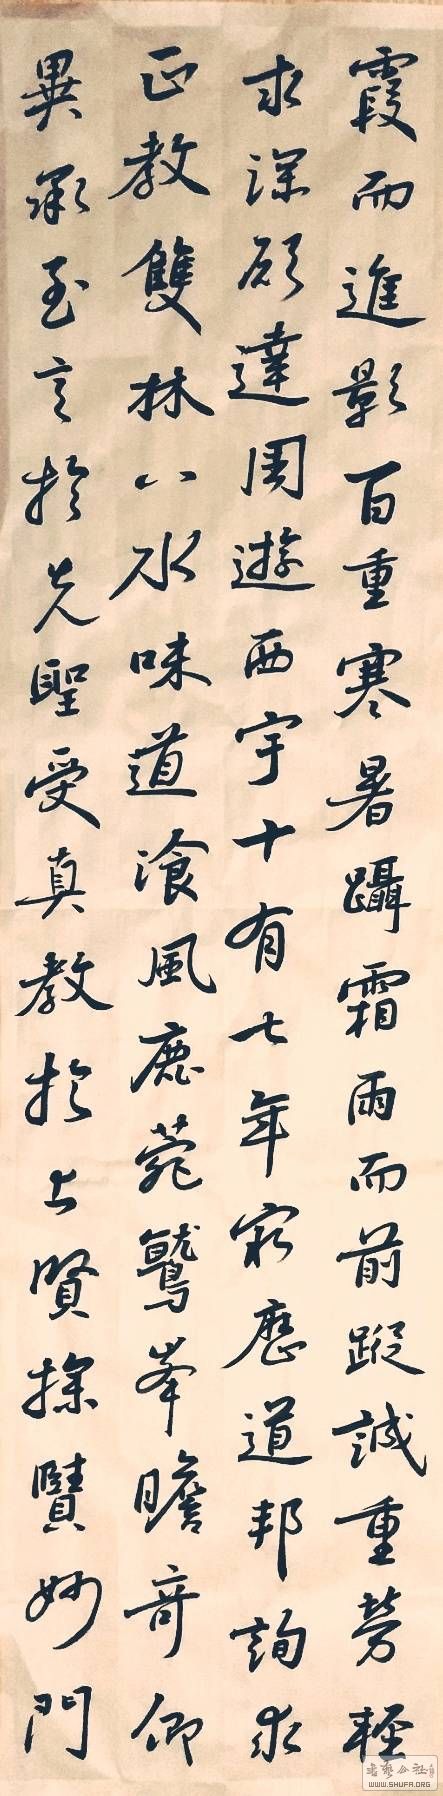 霞而進影百重寒暑躡霜雨而前蹤誠重勞輕
求深願達周遊西宇十有七年窮歷道邦詢求
正教雙林八水味道飡風鹿菀鷲峯瞻奇仰
異承至言於先聖受真教於上賢探賾妙門
WWW.SHUFA.ORG